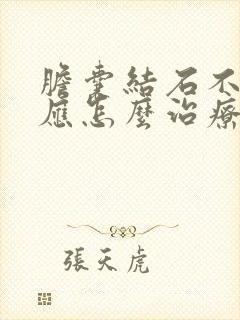 膽囊結石不
應怎麼治療
張天虎